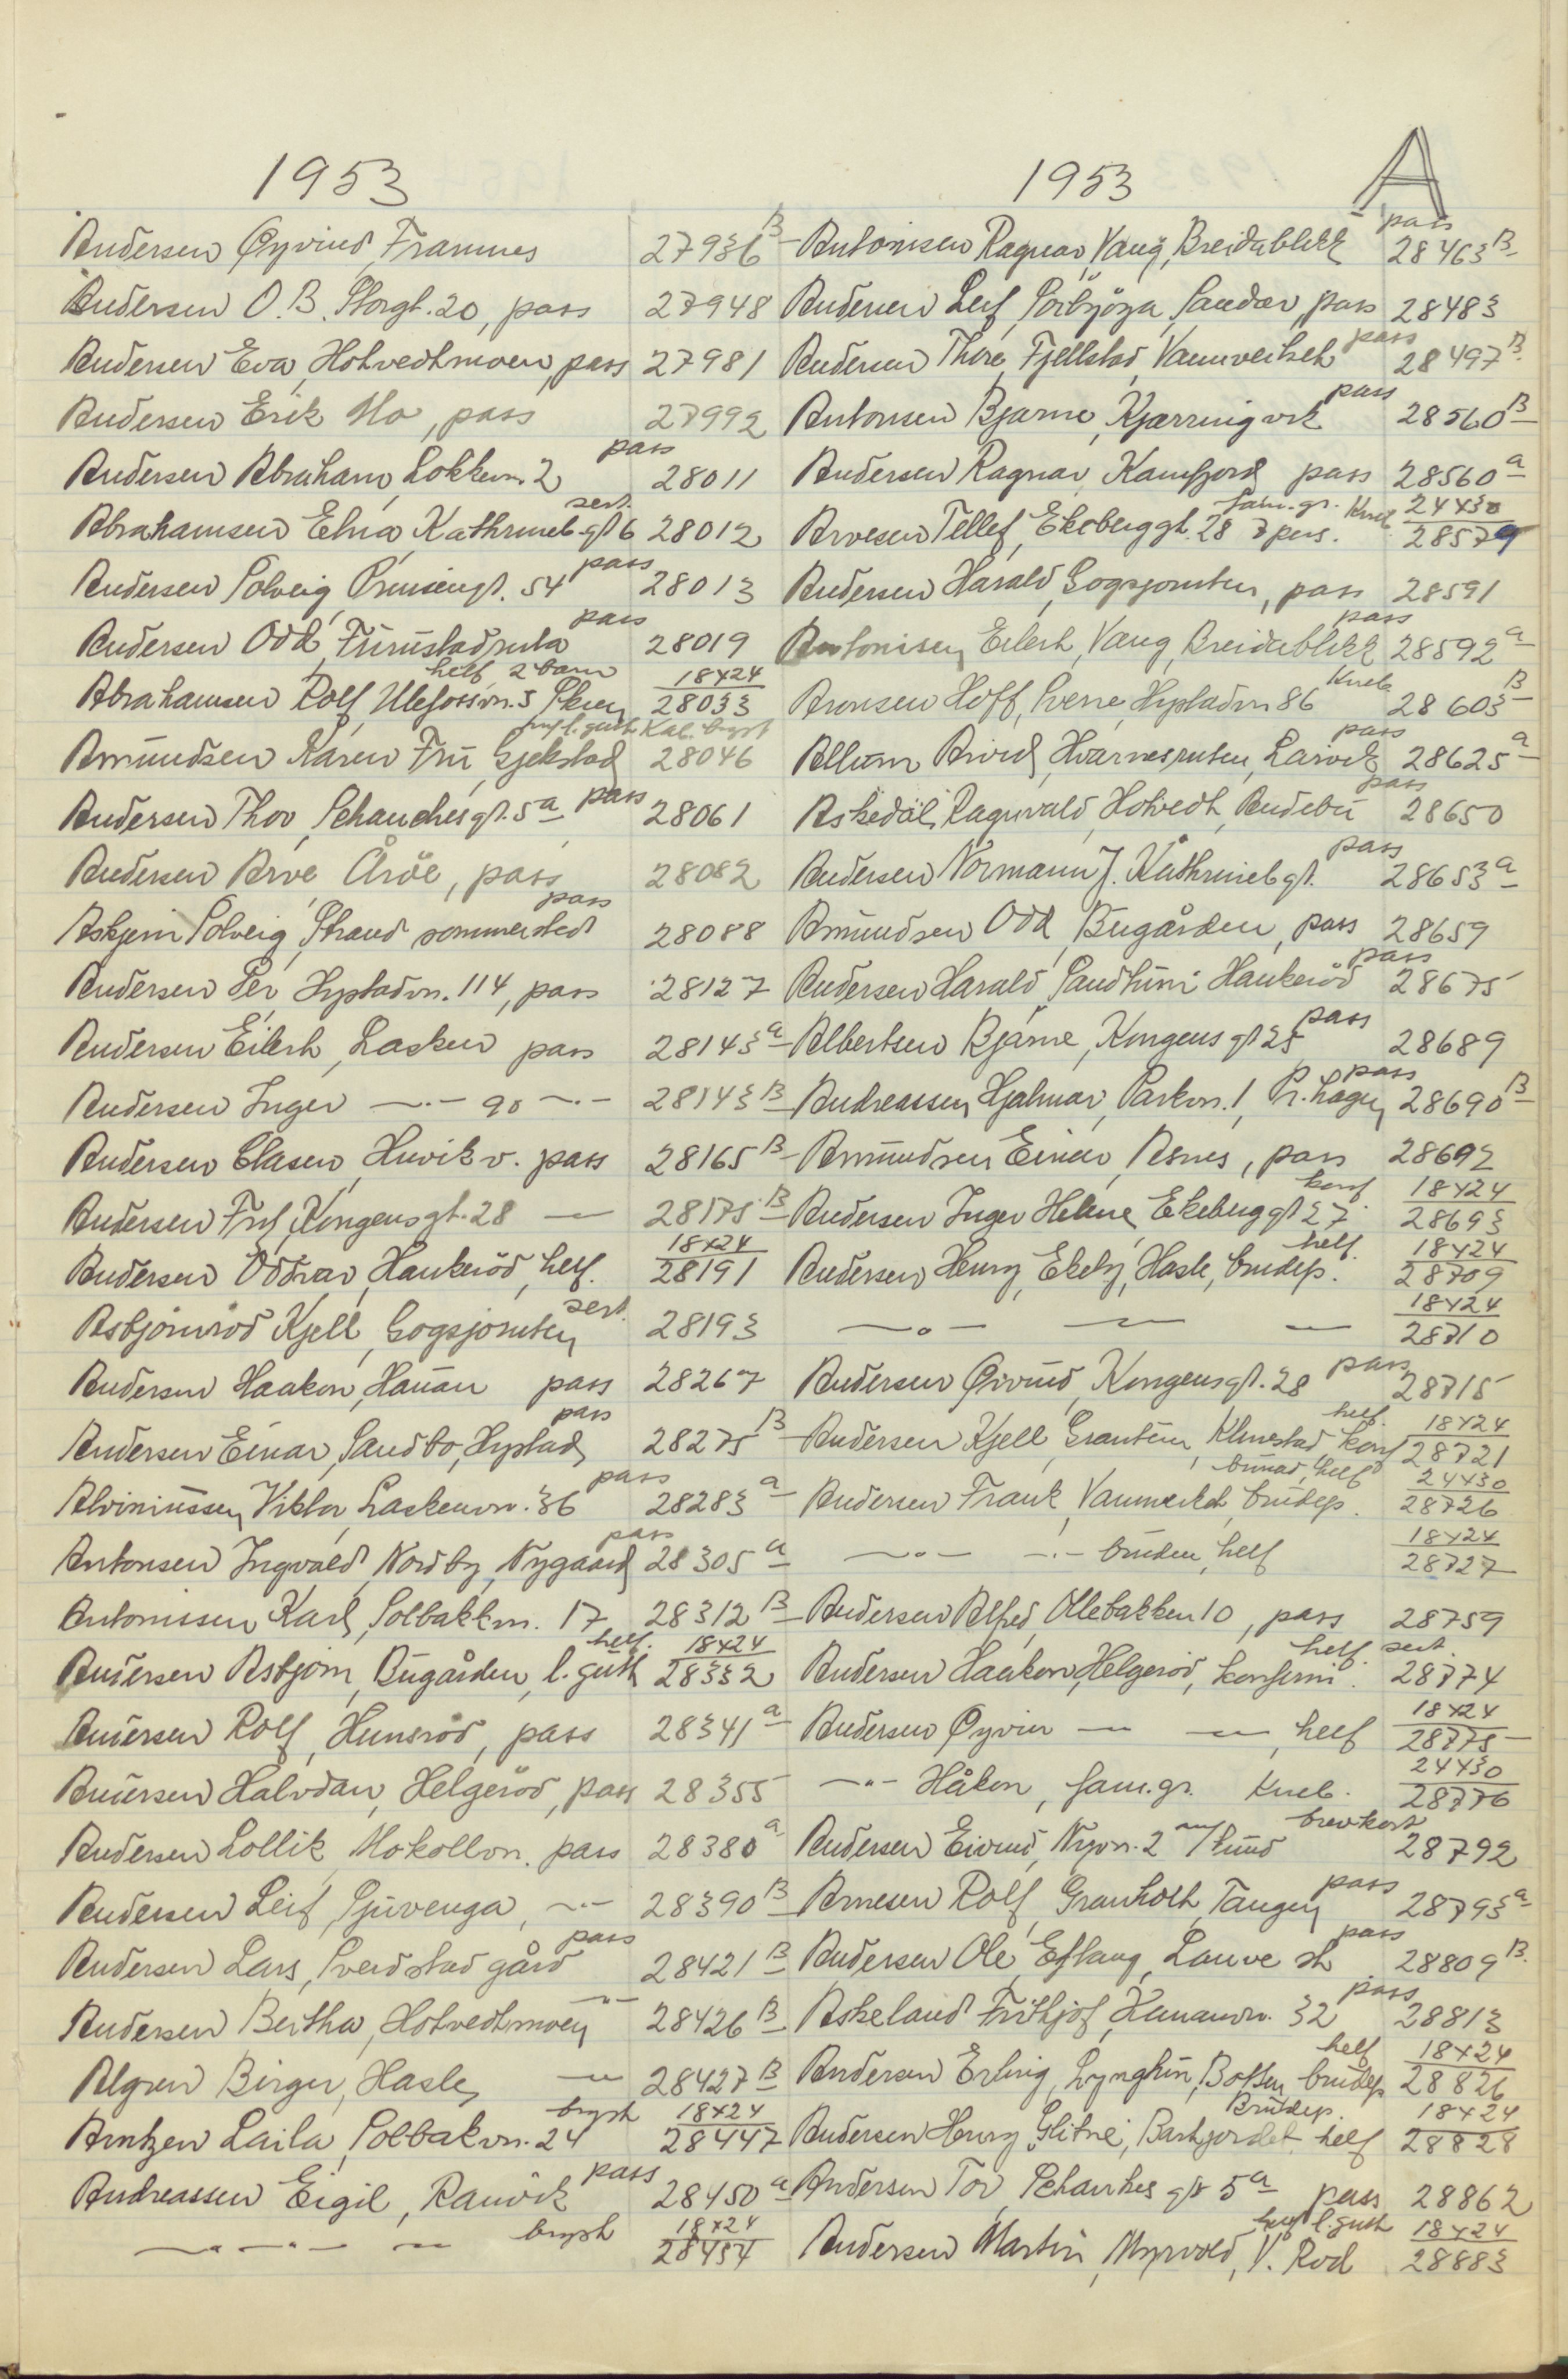 1953
Andersen Øyvind, Framnes 27936 B
Andersen O. B. Storgt. 20, pass 27948
Andersen Eva, Hotvedtmoen, pass 27981
Andersen Erik Mo, pass 27992
Andersen Abraham, Løkkevn. 2 pass 28011
Abrahamsen Elna, Kathrinebgt 6 sert. 28012
Andersen Solveig, Prinsensgt. 54 pass 28013
Andersen Odd, Furustadruta pass 28019
Abrahamsen Rolf, Ulefossvn. 5 Skien helf 2 barn 18x24 28033
Amundsen Karen Fru, Gjekstad m/l. gutt Kab. bryst 28046
Andersen Thor, Schanchesgt. 5a pass 28061
Andersen Arve Årøe, pass 28082
Askjem Solveig, Strand sommersted pass 28088
Andersen Per Hystadvn. 114, pass 28127
Andersen Eilert, Lasken pass 28143 a
Andersen Inger —·— 90 —·— 28143 B
Andersen Clasen, Huvik v. pass 28165 B
Andersen Frk, Kongensgt. 28 — 28175 B
Andersen Oddvar, Haukerød, helf. 18x24 28191
Asbjørnrød Kjell, Gogsjøruten sert. 28193
Andersen Haakon, Hauan pass 28267
Andersen Einar, Sandbo, Hystad pass 28275 B
Alviniussen, Viktor, Laskenvn. 36 pass 28283 a
Antonsen Ingvald, Nordby, Nygaard pass 28305 a
Antonissen Karl, Solbakkvn. 17 28312 B
Andersen Asbjørn, Bugården, l. gutt helf. 18x24 28332
Andersen Rolf, Hunsrød, pass 28341 a
Andersen Halvdan, Helgerød, pass 28355
Andersen Lollik, Mokollvn. pass 28380 a
Andersen Leif, Sjuvenga, —·— 28390 B
Andersen Lars, Sverdstad gård pass 28421 B
Andersen Bertha, Hotvedtmoen —"— 28426 B
Algren Birger, Hasle, — 28427 B
Arntzen Laila, Solbakvn. 24 bryst 18x24 28447
Andreassen Eigil, Ranvik pass 28450 a
—"—"— — bryst 18x24 28454
1953 A
Antonisen Ragnar, Vang, Breidablikk pass 28463 B
Andersen Leif, Sörbyöya, Sandar, pass 28483
Andersen Thore, Fjellstad, Vannverket pass 28497 B
Antonsen Bjarne, Kjærringvik pass 28560 B
Andersen Ragnar, Kamfjord pass 28560 a
Arvesen Tellef, Ekeberggt. 28 7 pers. fam. gr. Kneb. 24x30 28579
Andersen Harald, Gogsjøruten, pass 28591
Antonisen, Eilert, Vang, Breidablikk pass 28592 a
Aronsen Hoff, Sverre, Hystadvn 86 Kneb 28603 B
Allum Arvid, Hvarnesruten, Larvik pass 28625 a
Askedäl, Ragnvald, Hotvedt, Andebu pass 28650
Andersen Normann J. Kathrinebgt. pass 28653 a
Amundsen Odd, Bugården, pass 28659
Andersen Harald, Sandtun Haukerød pass 28675
Albertsen Bjarne, Kongensgt 25 pass 28689
Andreassen, Hjalmar, Parkvn. 1, Pr. hagen pass 28690 B
Amundsen Einar, Asnes, pass 28692
Andersen Inger Helene, Ekeberggt 27 konf. 18x24 28693
Andersen Henry, Ekely, Hasle, brudep. helf. 18x24 28709
—o— — — 18x24 28710
Andersen Øivind, Kongensgt. 28 pass 28715
Andersen Kjell, Grantun, Klinestad, konf helf. 18x24 28721
Andersen Frank, Vannverket, brudep. bunad, helf 24x30 28726
—o— —·— bruden, helf 18x24 28727
Andersen Alfred, Ollebakken 10, pass 28759
Andersen Haakon, Helgerød, konferm. helf. sert. 28774
Andersen Øyvin — —, helf 18x24 28775
—"— Håkon, fam. gr. Kneb. 24x30 28776
Andersen Eivind, Nyvn. 2 m/hund brevkort 28792
Arnesen Rolf, Granholt, Tangen pass 28793 a
Andersen Ole, Eftang, Lauve st pass 28809 B
Askeland Frithjof, Kamanvn. 32 pass 28813
Andersen Erling, Lynghun, Botten, brudep helf 18x24 28826
Andersen Henry, Glitne, Barkjordet helf Brudep. 18x24 28828
Andersen Tor, Schankes gt 5a pass 28862
Andersen Martin, Myrvold, V. Rød helf l. gutt 18x24 28883